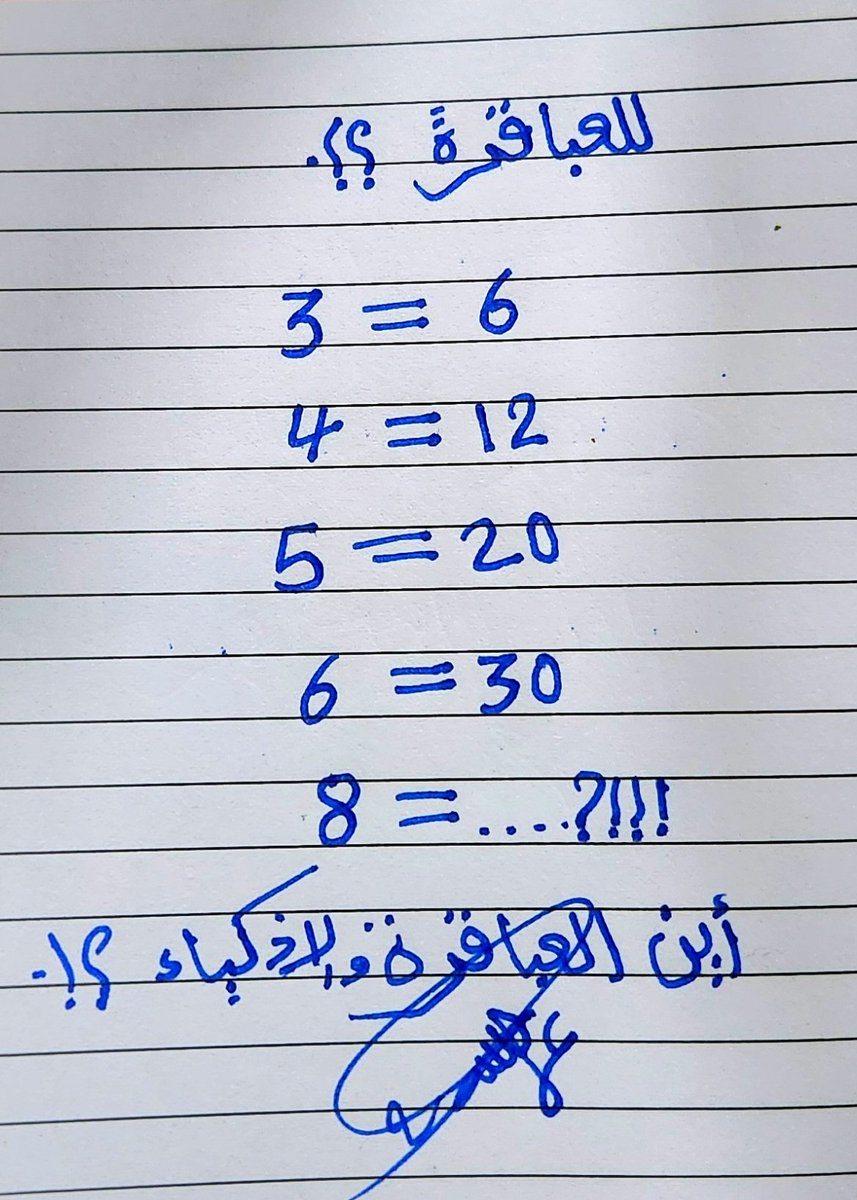 للعباقرة ؟؟.
3 = 6
4 = 12
5 = 20
6 = 30
8 = ....?!!!
أين العباقرة والاذكياء ؟!.